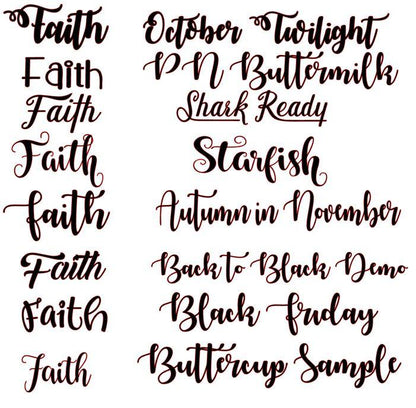 Faith October Twilight
Faith PN Buttermilk
Faith Shark Ready
Faith Starfish
faith Autumn in November
Faith Back to Black Demo
Faith Black friday
Faith Buttercup Sample